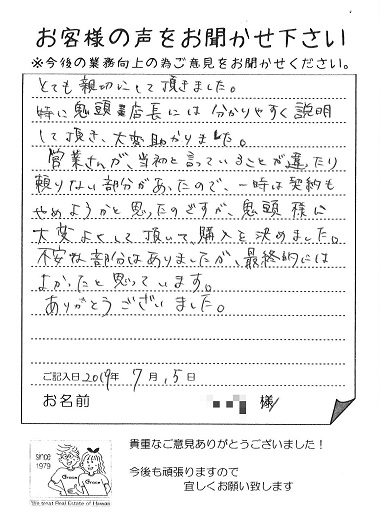 お客様の声をお聞かせ下さい
※今後の業務向上の為ご意見をお聞かせください。
とても親切にして頂きました。
特に鬼頭店長には分かりやすく説明
して頂き、大変助かりました。
営業さんが、当初と言っていることが違ったり
頼りない部分があったので、一時は契約も
やめようかと思ったのですが、鬼頭様に
大変よくして頂いて、購入を決めました。
不安な部分はありましたが、最終的には
よかったと思っています。
ありがとうございました。
ご記入日2019年 7月 15日
お名前 様
since
1979
Grace
Grace
The Great Real Estate of Hawaii
貴重なご意見ありがとうございました！
今後も頑張りますので
宜しくお願い致します